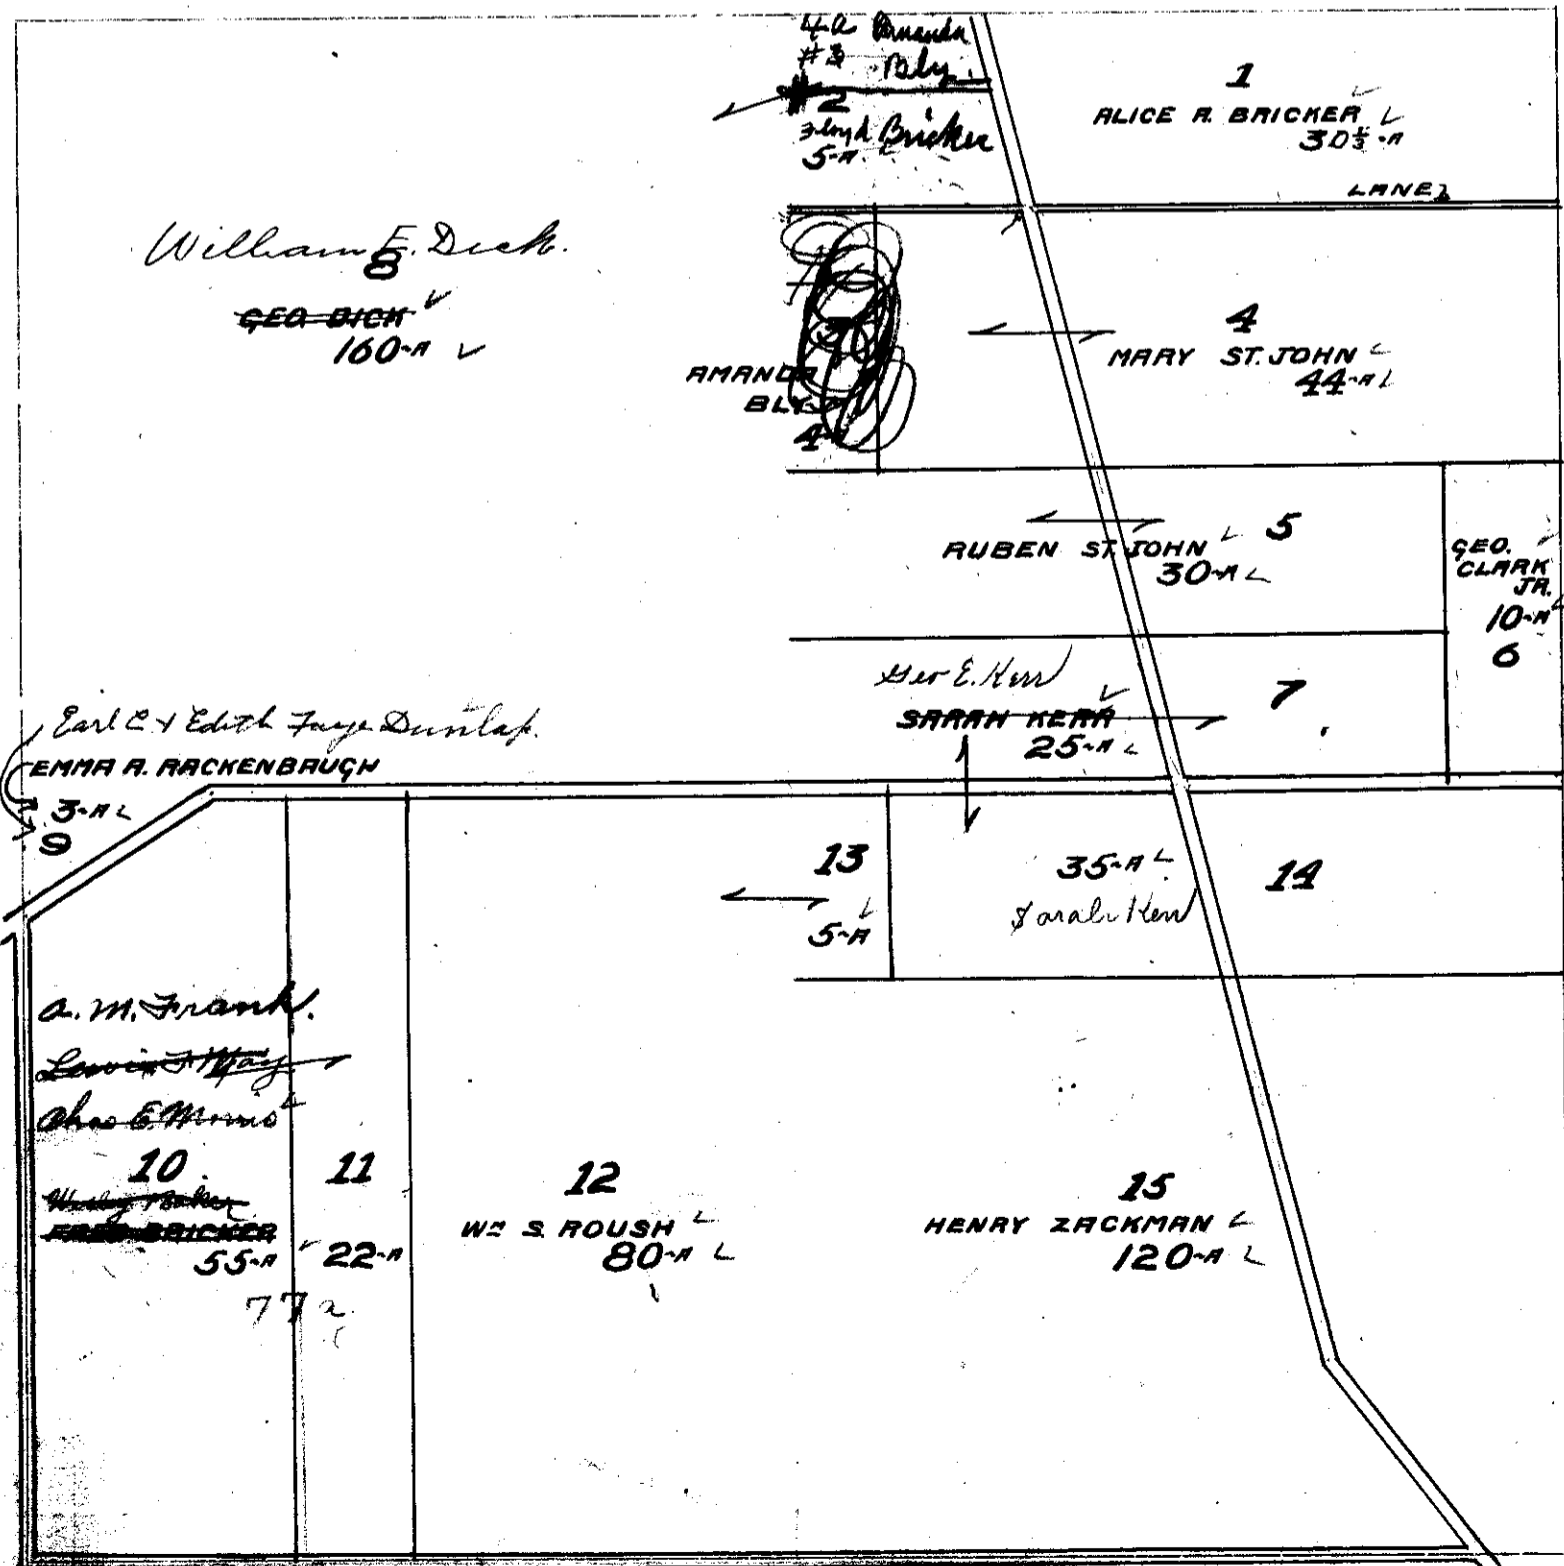 4a Amanda
#3 Bly
#2
Floyd Bricker
5-A
1
ALICE A. BRICKER
30⅓-A
LANE
William E. Dick.
8
GEO DICK
160-A
AMANDA
BLY
4-A
4
MARY ST. JOHN
44-A
5
RUBEN ST. JOHN
30-A
GEO.
CLARK
JR.
10-A
6
Geo E. Kerr
7
SARAH KERR
25-A
Earl C & Edith Faye Dunlap.
EMMA A. RACKENBAUGH
3-A
9
13
5-A
35-A
14
Sarah Kerr
A. M. Frank.
Lewis F May
Chas E. Morris
10
Wesley Baker
FRED BRICKER
55-A
11
22-A
77 a.
12
WM S. ROUSH
80-A
15
HENRY ZACKMAN
120-A